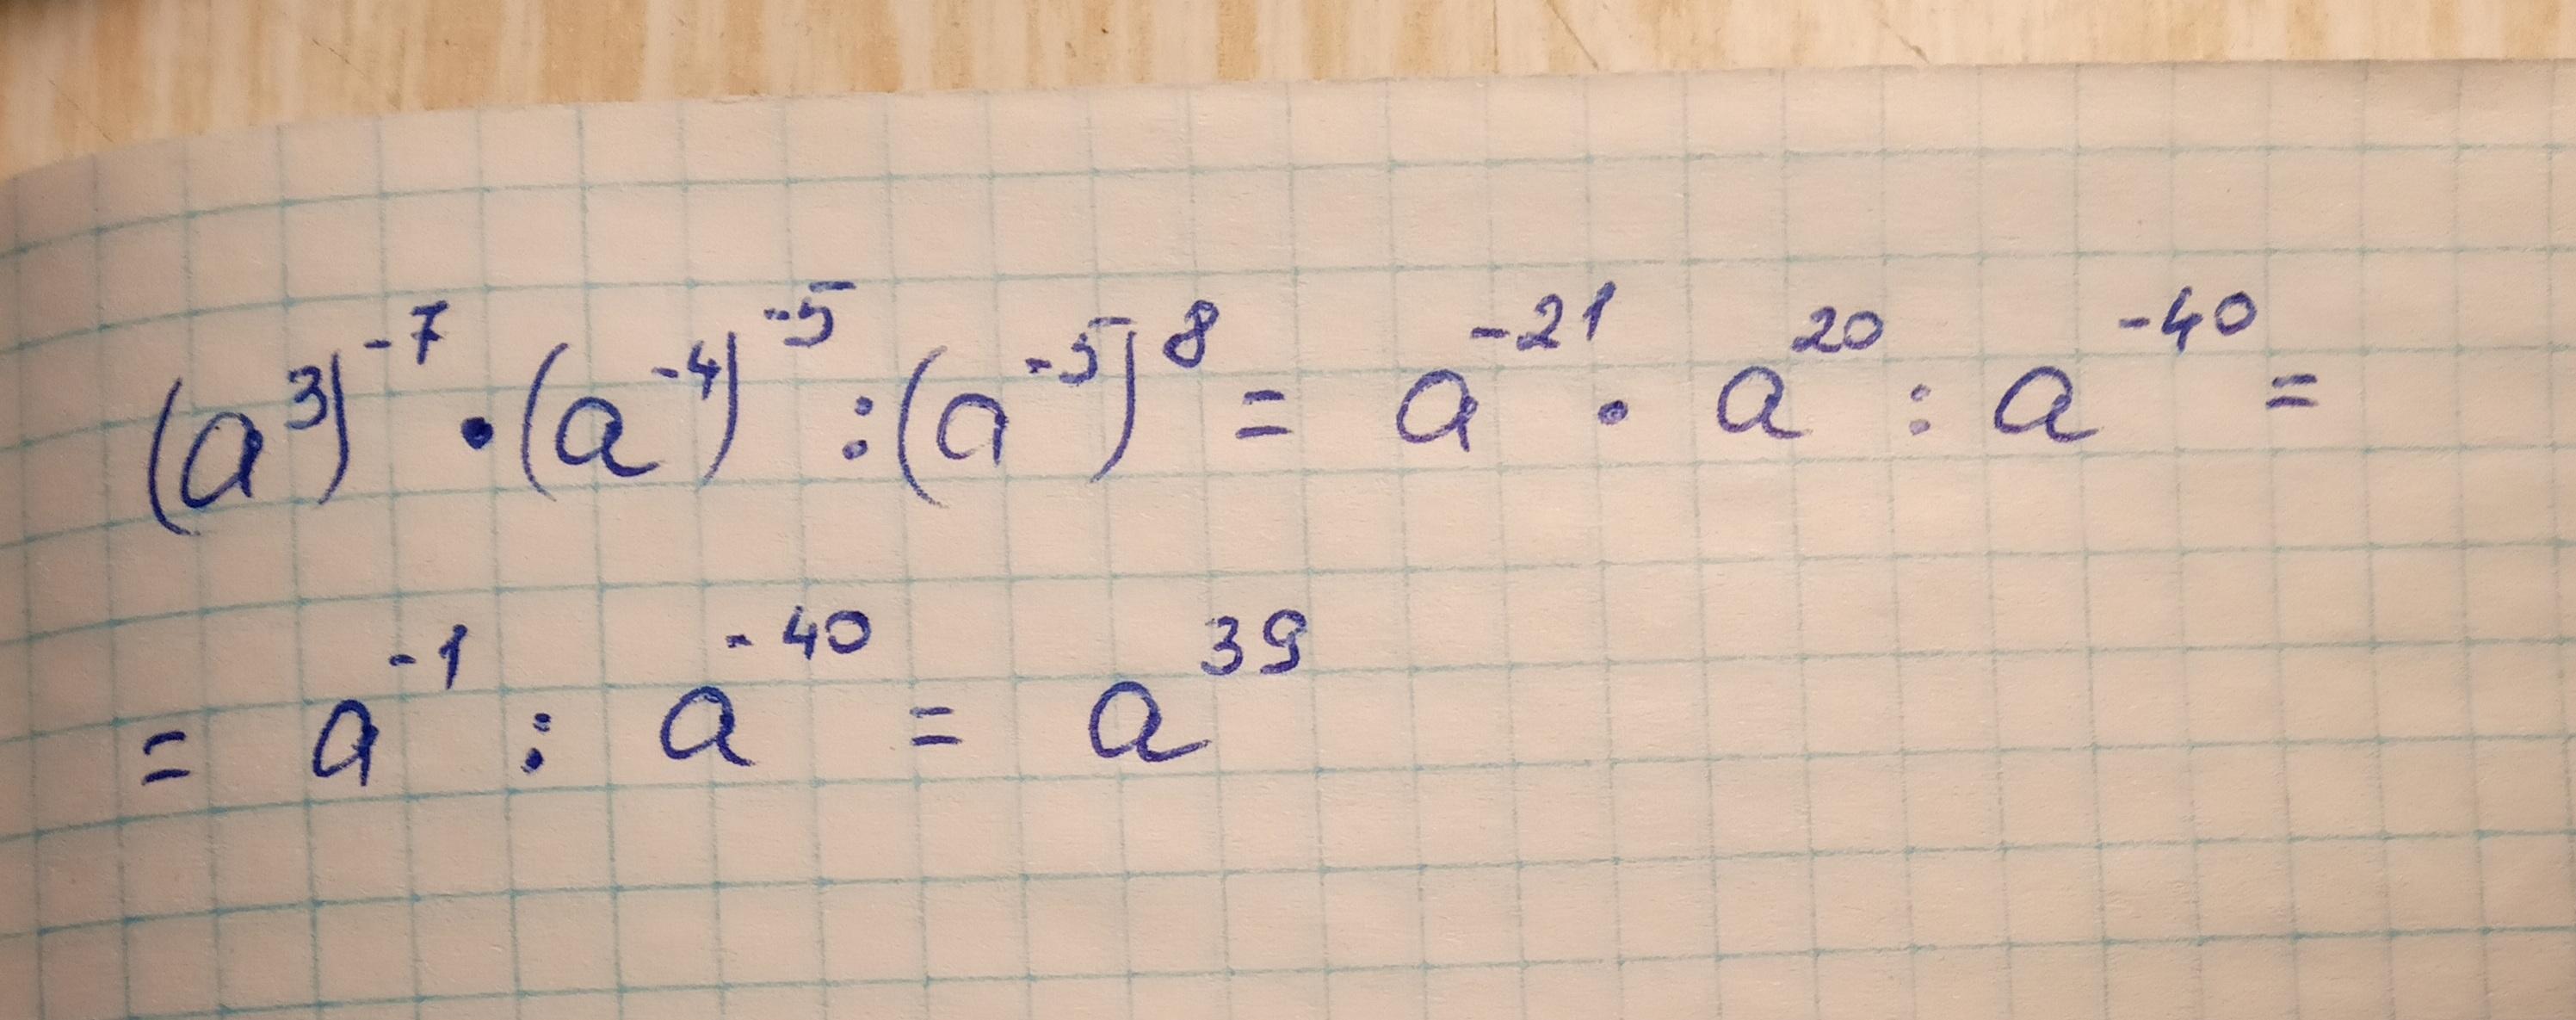 (a³)⁻⁷ · (a⁻⁴)⁻⁵ : (a⁻⁵)⁸ = a⁻²¹ · a²⁰ : a⁻⁴⁰ =
= a⁻¹ : a⁻⁴⁰ = a³⁹